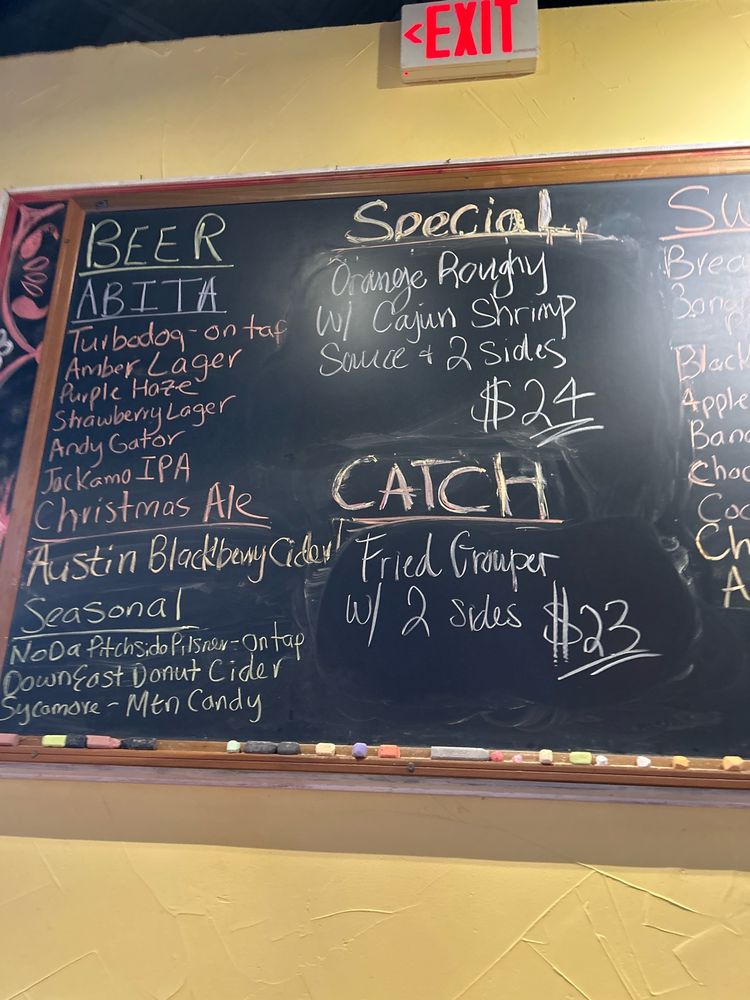 <EXIT
BEER
ABITA
Turbodog - on tap
Amber Lager
Purple Haze
Strawberry Lager
Andy Gator
Jockamo IPA
Christmas Ale
Austin Blackberry Cider
Seasonal
NoDa PitchsidePilsner - On tap
DownEast Donut Cider
Sycamore - Mtn Candy
Special
Orange Roughy
w/ Cajun Shrimp
Sauce + 2 Sides
$24
CATCH
Fried Grouper
w/ 2 sides $23
Su
Brea
Black
Apple
Bana
Choc
Coc
Ch
A